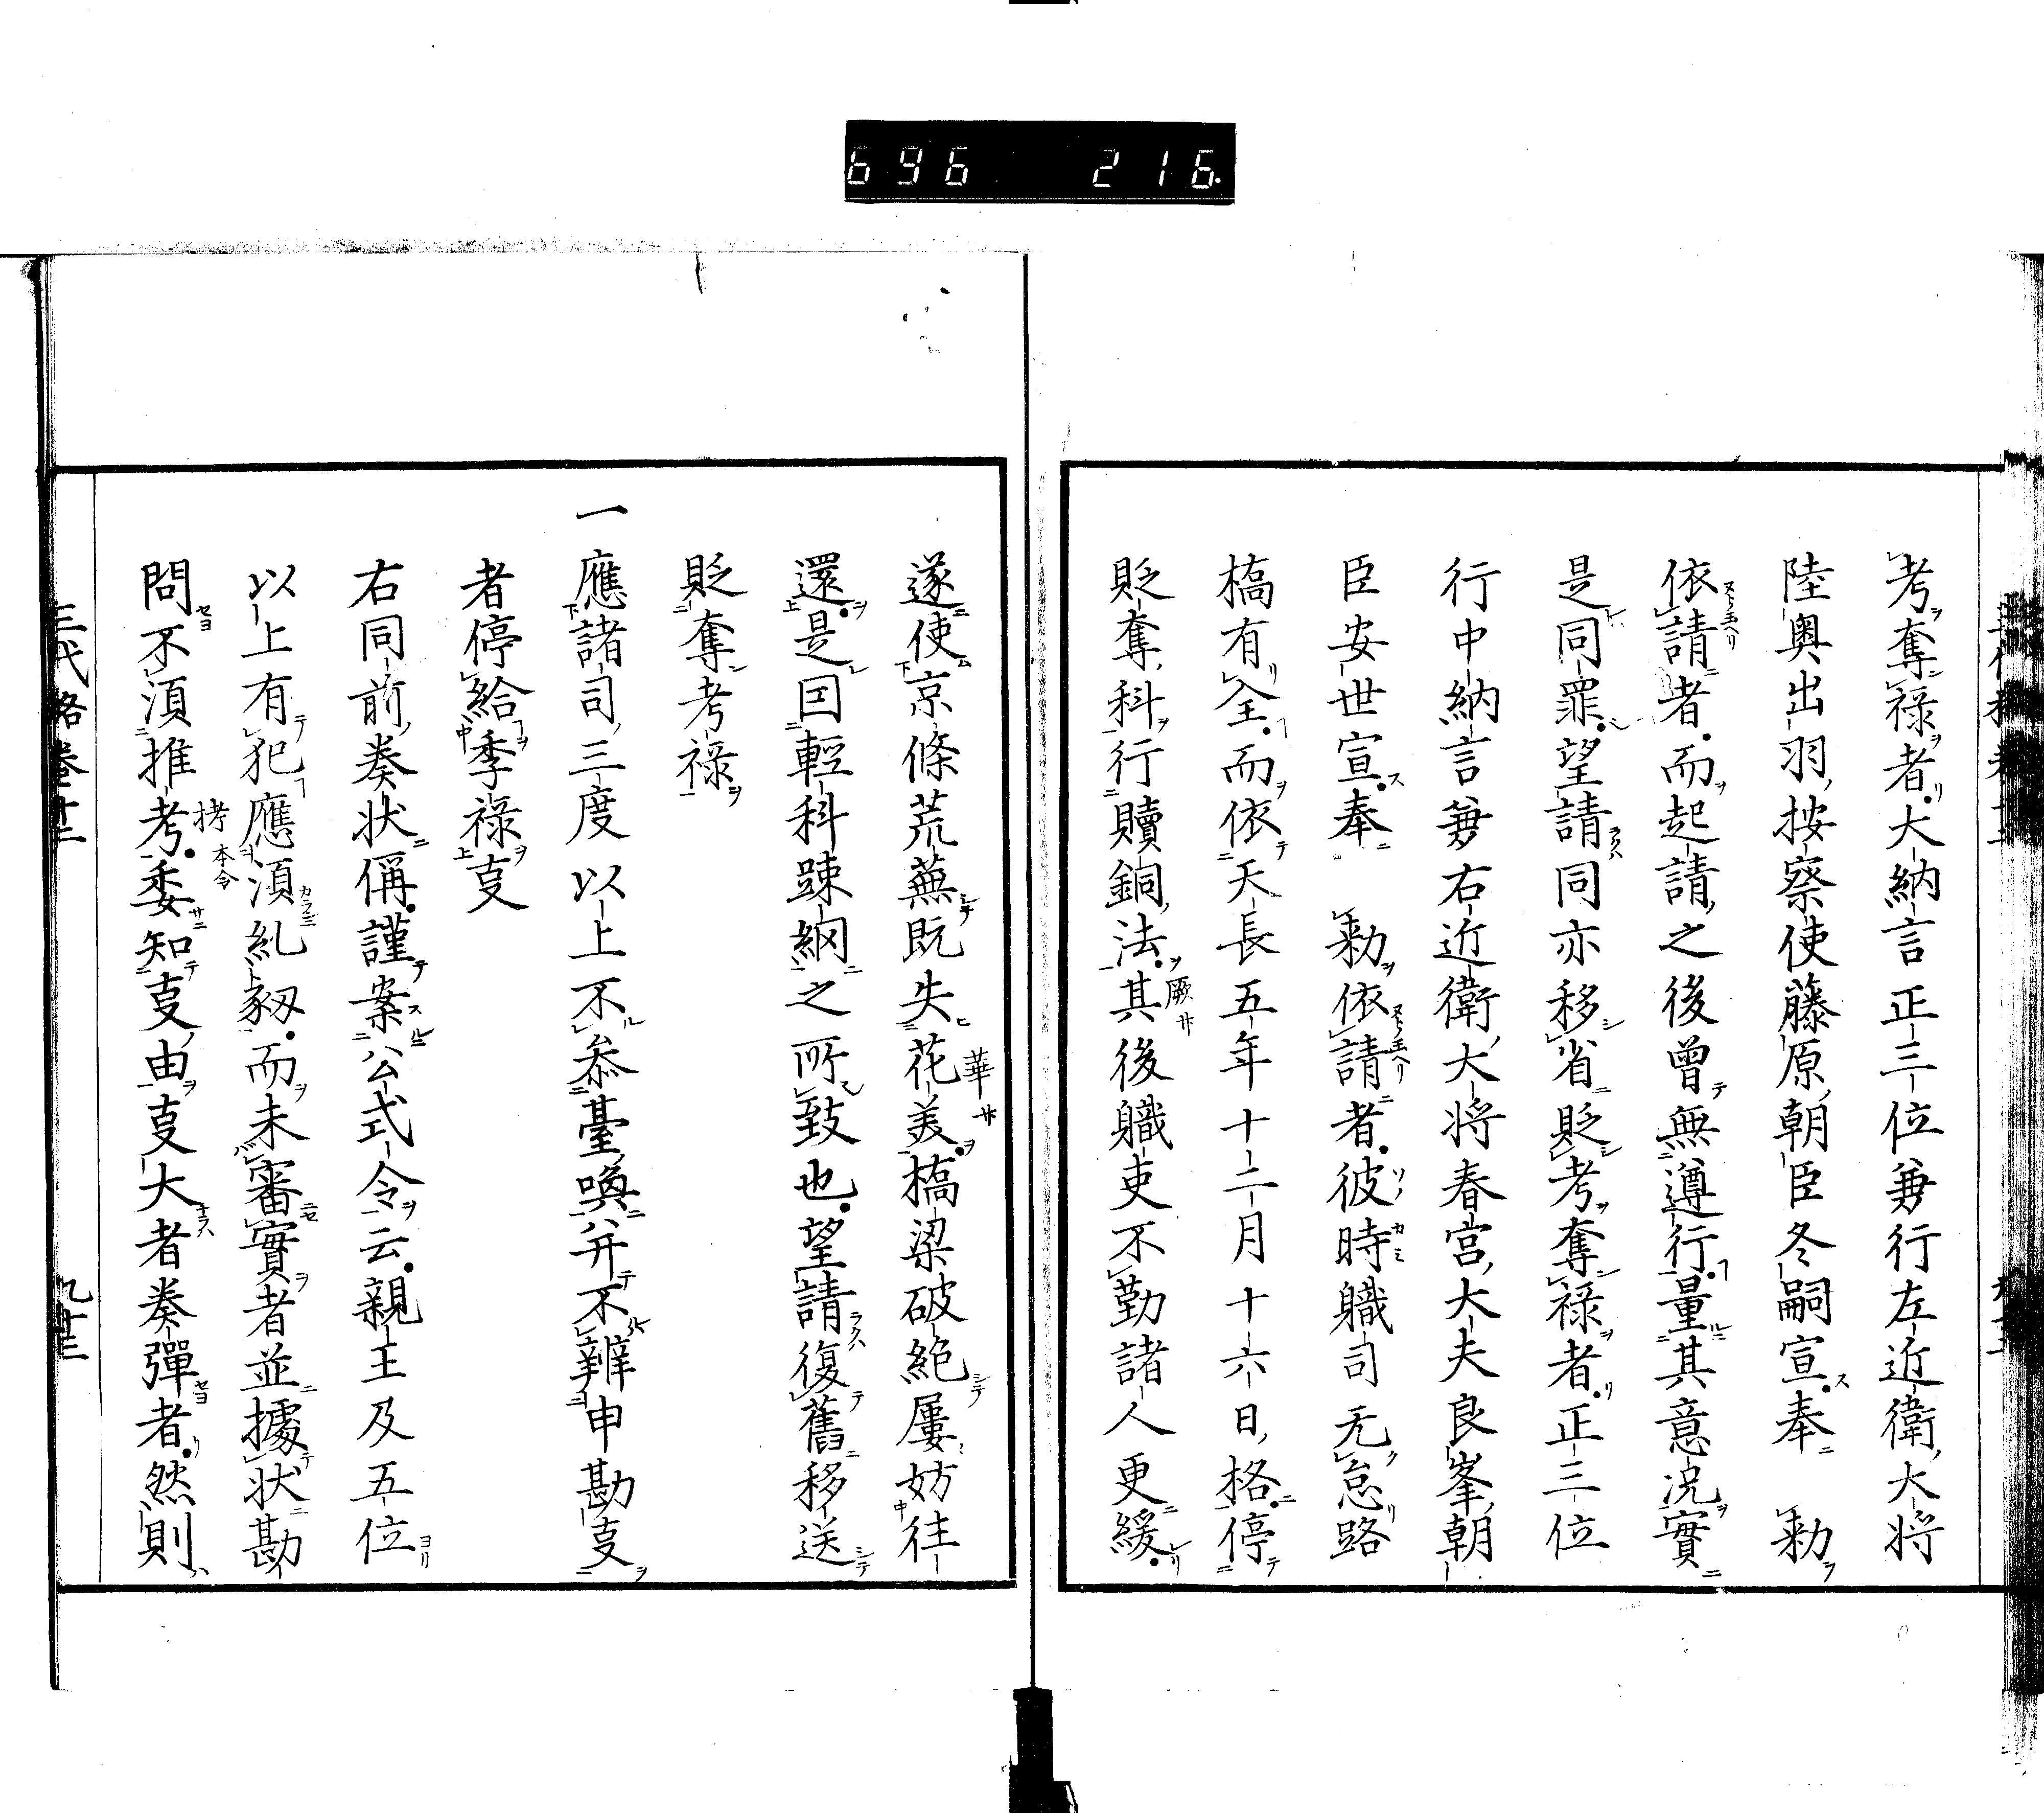 696 216
考奪祿者大納言正三位兼行左近衛大将
陸奥出羽按察使藤原朝臣冬嗣宣奉 勅
依請者而起請之後曾無遵行量其意況實
是同罪望請同亦移省貶考奪祿者正三位
行中納言兼右近衛大将春宮大夫良峯朝
臣安世宣奉 勅依請者彼時職司无怠路
橋有全而依天長五年十二月十六日格停
貶奪科行贖銅法其後職吏不勤諸人更緩
厥廾
遂使京條荒蕪既失花美橋梁破絶屢妨往
華廾
還是因輕科踈網之所致也望請復舊移送
貶奪考祿
一應諸司三度以上不叅臺喚并不辨申勘㕝
者停給季祿㕝
右同前奏状偁謹案公式令云親王及五位
以上有犯應湏糺劾而未審實者並據状勘
問不湏推考委知㕝由㕝大者奏彈者然則
拷本令
三代格巻十二